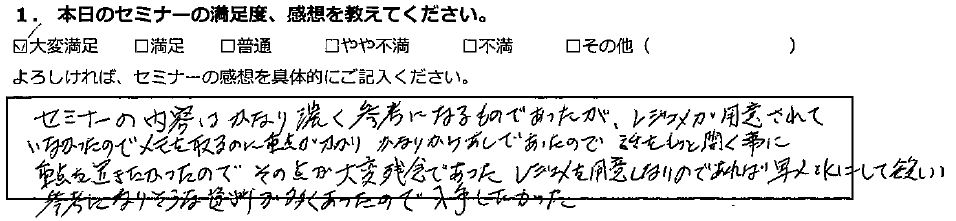 1. 本日のセミナーの満足度、感想を教えてください。
☑大変満足 □満足 □普通 □やや不満 □不満 □その他( )
よろしければ、セミナーの感想を具体的にご記入ください。
セミナーの内容はかなり濃く参考になるものであったが、レジュメが用意されて
いなかったのでメモを取るのに重点がかかり かなりかけ足であったので 話をもっと聞く事に
重点を置きたかったので その点が大変残念であった レジュメを用意しないのであれば 早く にして欲しい
参考になりそうな資料が多くあったので入手したかった